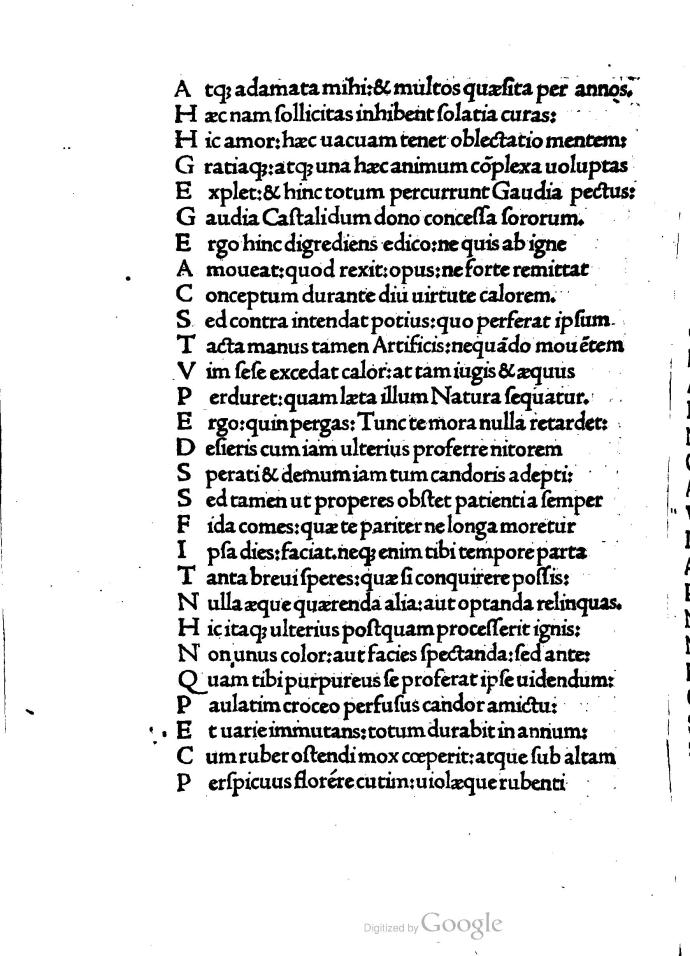 A tqꝫ adamata mihi:& multos quæſita per annos.
H æc nam ſollicitas inhibent ſolatia curas:
H ic amor:hæc uacuam tenet oblectatio mentem:
G ratiaqꝫ:atqꝫ una hæc animum cõplexa uoluptas
E xplet:& hinc totum percurrunt Gaudia pectus:
G audia Caſtalidum dono conceſſa ſororum.
E rgo hinc digrediens edico:ne quis ab igne
A moueat:quod rexit:opus:ne forte remittat
C onceptum durante diu uirtute calorem.
S ed contra intendat potius:quo perferat ipſum.
T acta manus tamen Artificis:nequãdo mouẽtem
V im ſeſe excedat calor:at tam iugis & æquus
P erduret:quam læta illum Natura ſequatur.
E rgo:quin pergas:Tunc te mora nulla retardet:
D eſieris cum iam ulterius proferre nitorem
S perati & demum iam tum candoris adepti:
S ed tamen ut properes obſtet patientia ſemper
F ida comes:quæ te pariter ne longa moretur
I pſa dies:faciat.neqꝫ enim tibi tempore parta
T anta breui ſperes:quæ ſi conquirere poſſis:
N ulla æque quærenda alia:aut optanda relinquas.
H ic itaqꝫ ulterius poſtquam proceſſerit ignis:
N on unus color:aut facies ſpectanda:ſed ante:
Q uam tibi purpureus ſe proferat ipſe uidendum:
P aulatim croceo perfuſus candor amictu:
E t uarie immutans:totum durabit in annum:
C um ruber oſtendi mox cœperit:atque ſub altam
P erſpicuus florére cutim:uiolæque rubenti
Digitized by Google